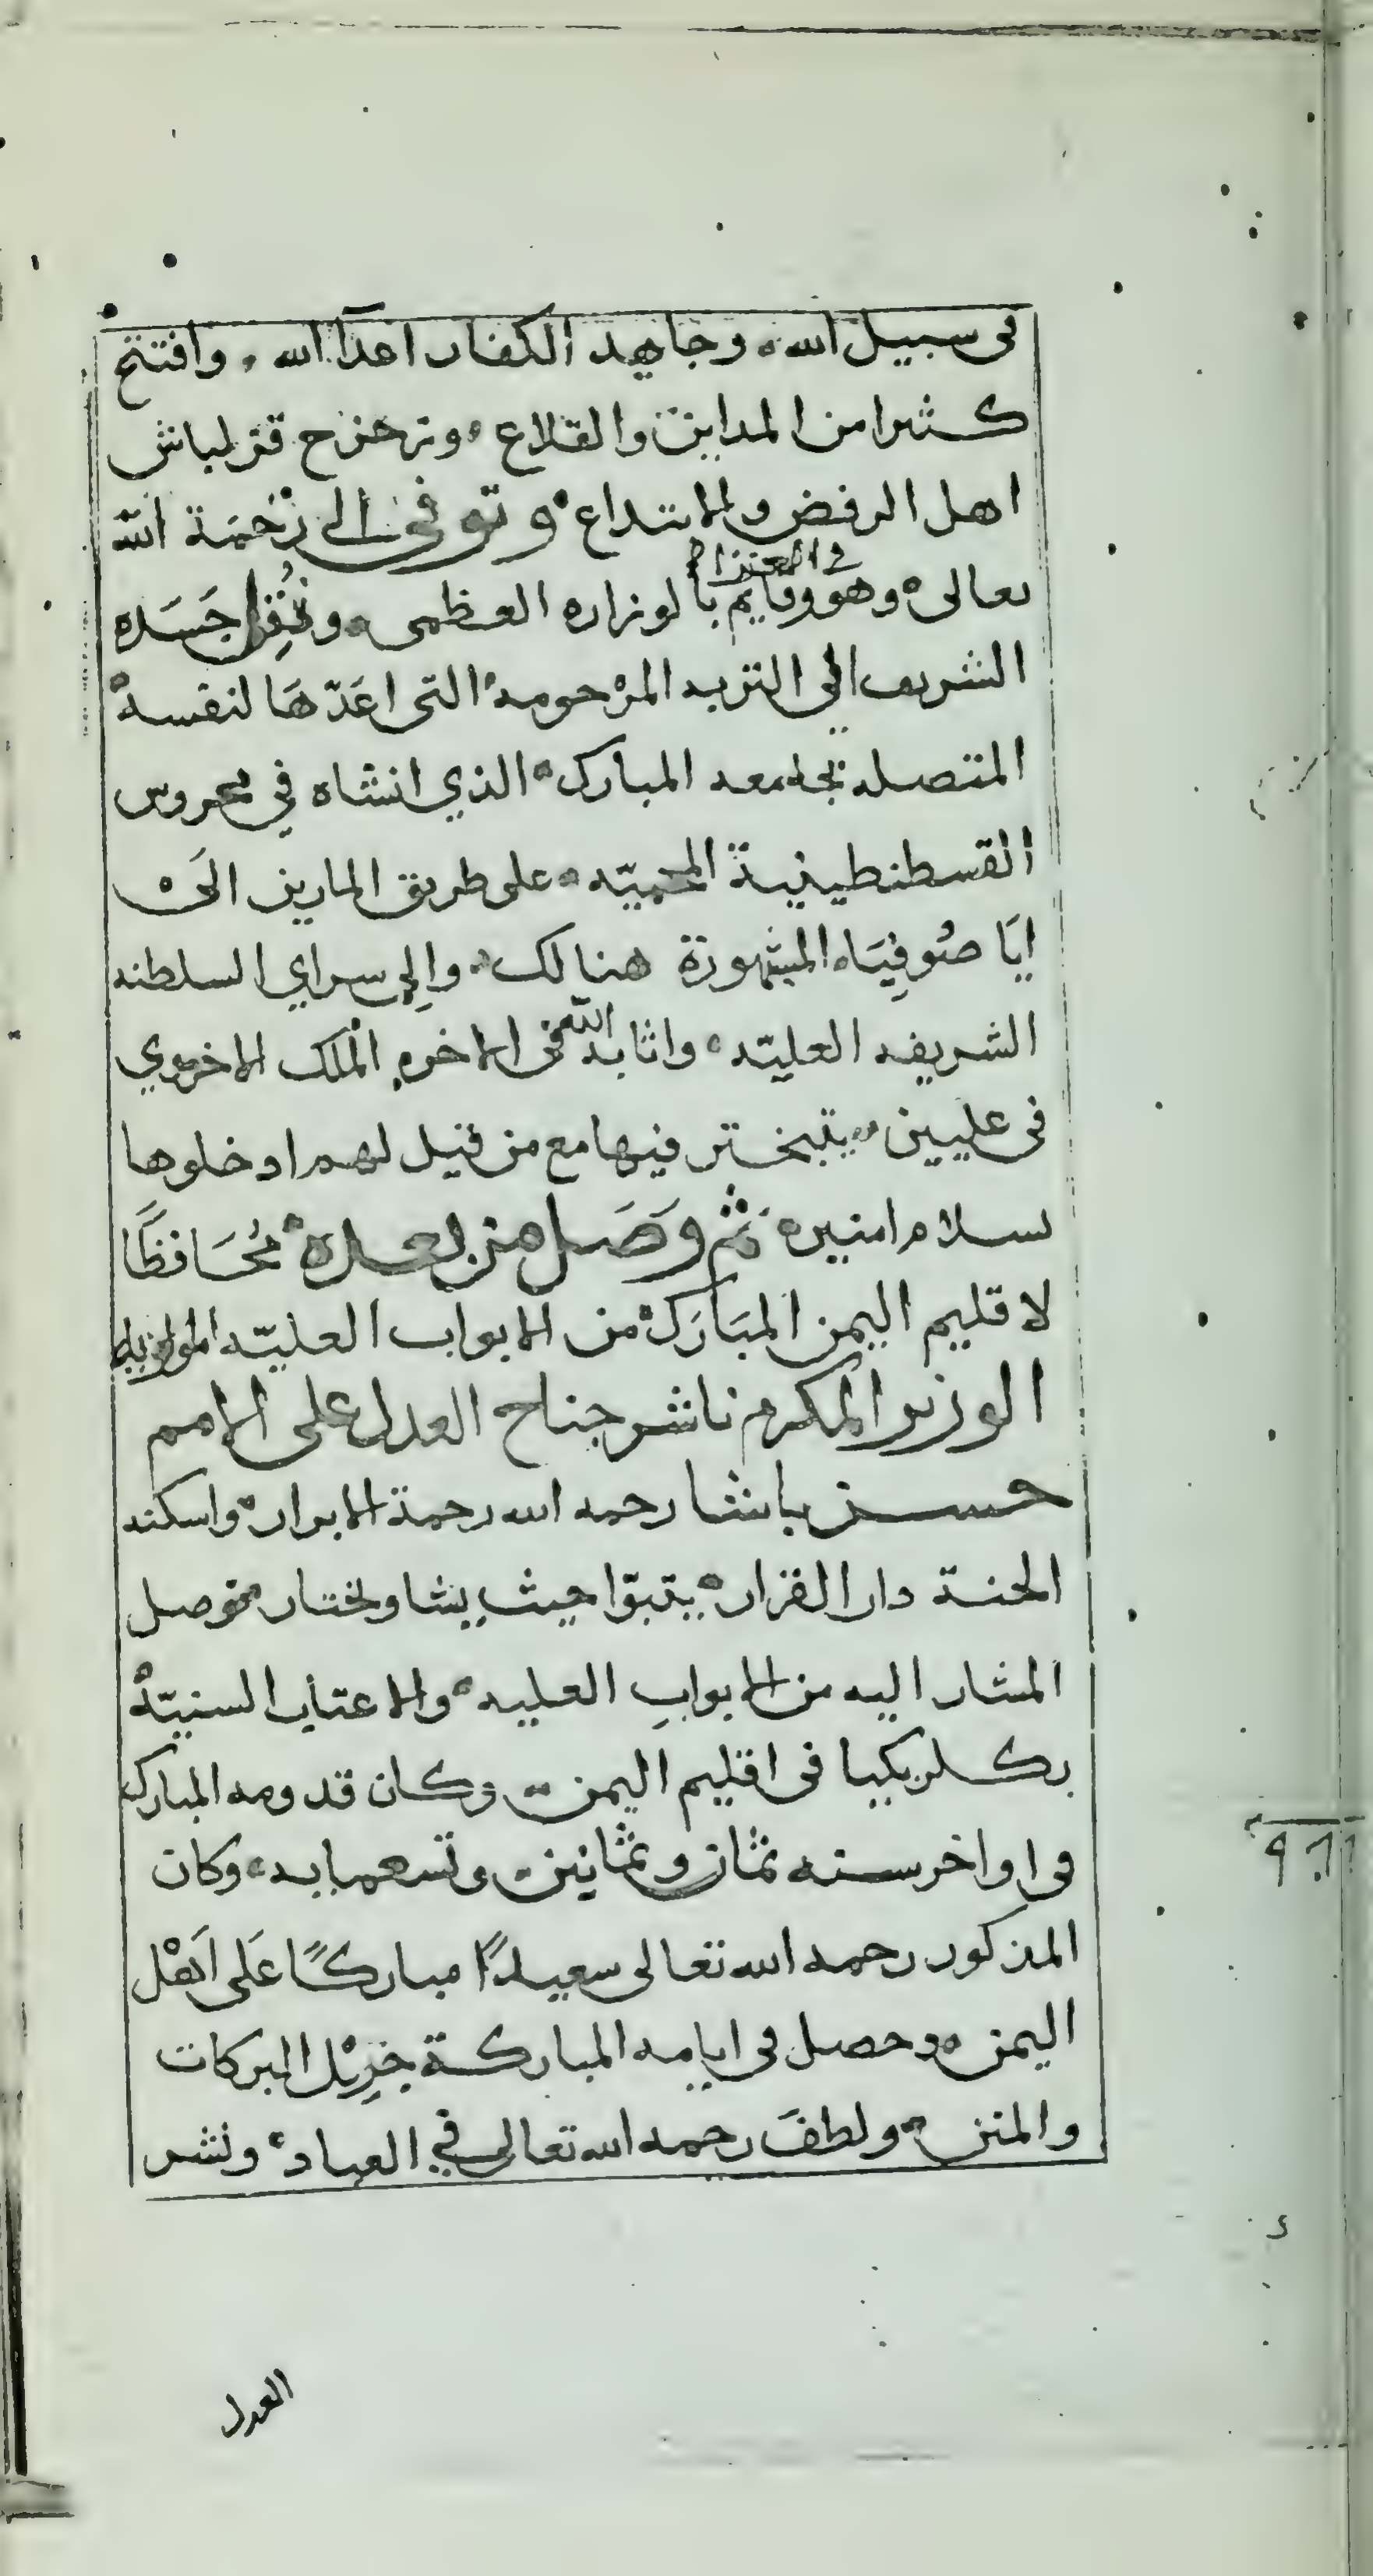 في سبيل الله، وجاهد الكفار اعدآ الله، وافتتح
كثيرا من المداين والقلاع، وتزحزح قزلباش
اهل الرفض والابتداع، وتوفي الى رحمة الله
تعالى وهو وقايم بالوزاره العظمى، ونُقِل جَسَده
الشريف الى التربه المرحومه التى اعَدّهَا لنفسه
المتصله بجامعه المبارك الذي انشاه في محروس
القسطنطينية المحميّه، على طريق المارين الى
ايَا صُوفِيَاه المشهورة هنالك، والى سراي السلطنه
الشريفه العليّه، واثابه الله فى الاخره الملك الاخروي
فى عليين، يتبختر فيها مع من قيل لهم ادخلوها
بسلام امنين، ثم وَصَل من بعده مُحَافظًا
لاقليم اليمن المبَارَك من الابواب العليّه
الوزير المكرم ناشر جناح العدل على الامم
حسن باشا رحمه الله رحمة الابرار، واسكنه
الجنة دار القرار، يتبوّا حيث يشا ويختار، فوصل
المشار اليه من الابوابِ العليه، والاعتاب السنيّه
بكلربكيا فى اقليم اليمن، وكان قدومه المبارك
فى اواخر سنه ثمان وثمانين وتسعمايه، وكان
المذكور رحمه الله تعالى سعيدًا مباركًا عَلى اَهْل
اليمن، وحصل فى ايامه المباركة جزيل البركات
والمنن، ولطفَ رحمه الله تعالى في العباد، ونشر
العدل